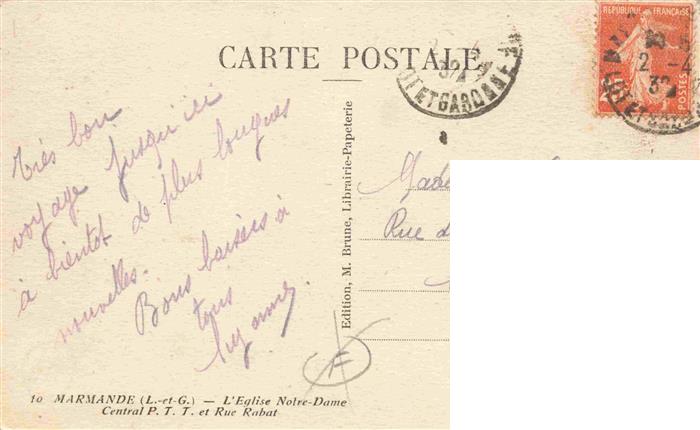 CARTE POSTALE
RÉPUBLIQUE FRANÇAISE
POSTES
2 -4
32
32
LOT ET GARONNE
ET GARONNE
Très bon
voyage jusqu'ici
à bientôt de plus longues
nouvelles.
Bons baisers à
tous
Edition, M. Brune, Librairie-Papeterie
Rue d
F
10 MARMANDE (L.-et-G.) — L'Eglise Notre-Dame
Central P. T. T. et Rue Rabat